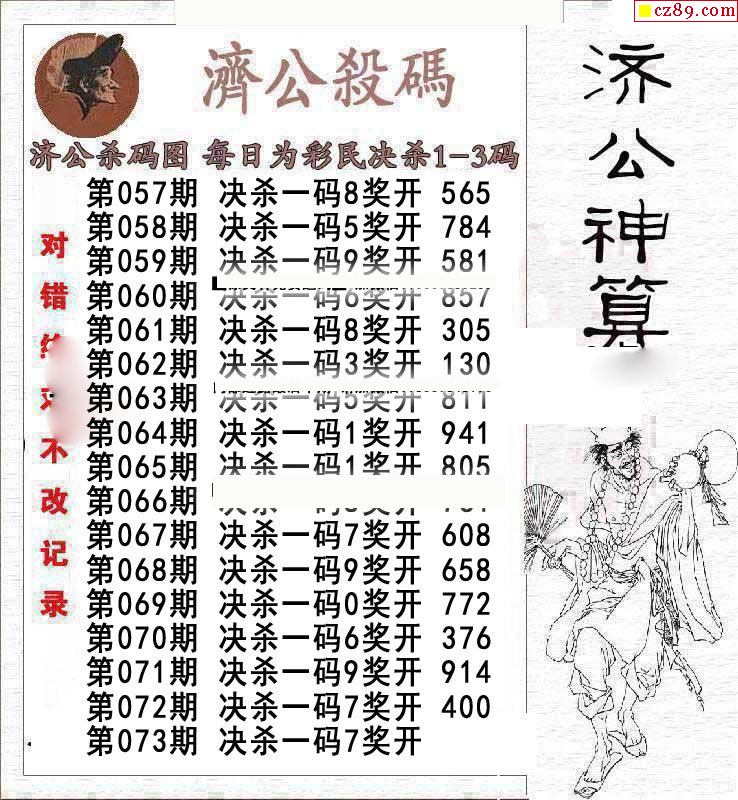 cz89.com
濟公殺碼
济公杀码图 每日为彩民决杀1-3码
第057期 决杀一码8奖开 565
第058期 决杀一码5奖开 784
第059期 决杀一码9奖开 581
第060期 决杀一码6奖开 857
第061期 决杀一码8奖开 305
第062期 决杀一码3奖开 130
第063期 决杀一码5奖开 811
第064期 决杀一码1奖开 941
第065期 决杀一码1奖开 805
第066期
第067期 决杀一码7奖开 608
第068期 决杀一码9奖开 658
第069期 决杀一码0奖开 772
第070期 决杀一码6奖开 376
第071期 决杀一码9奖开 914
第072期 决杀一码7奖开 400
第073期 决杀一码7奖开
对错
不改记录
济公神算